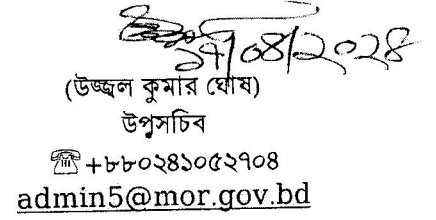 ১৭/০৪/২০২৪
(উজ্জ্বল কুমার ঘোষ)
উপসচিব
☏+৮৮০২৪১০৫২৭০৪
admin5@mor.gov.bd